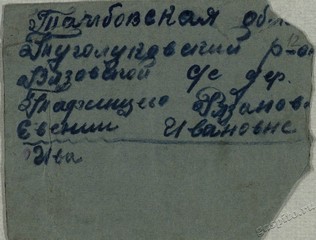 Тамбовская обла
Туголуковский р-он
Вязовской с/с дер.
Рязанов
Евении Ивановне
Ива